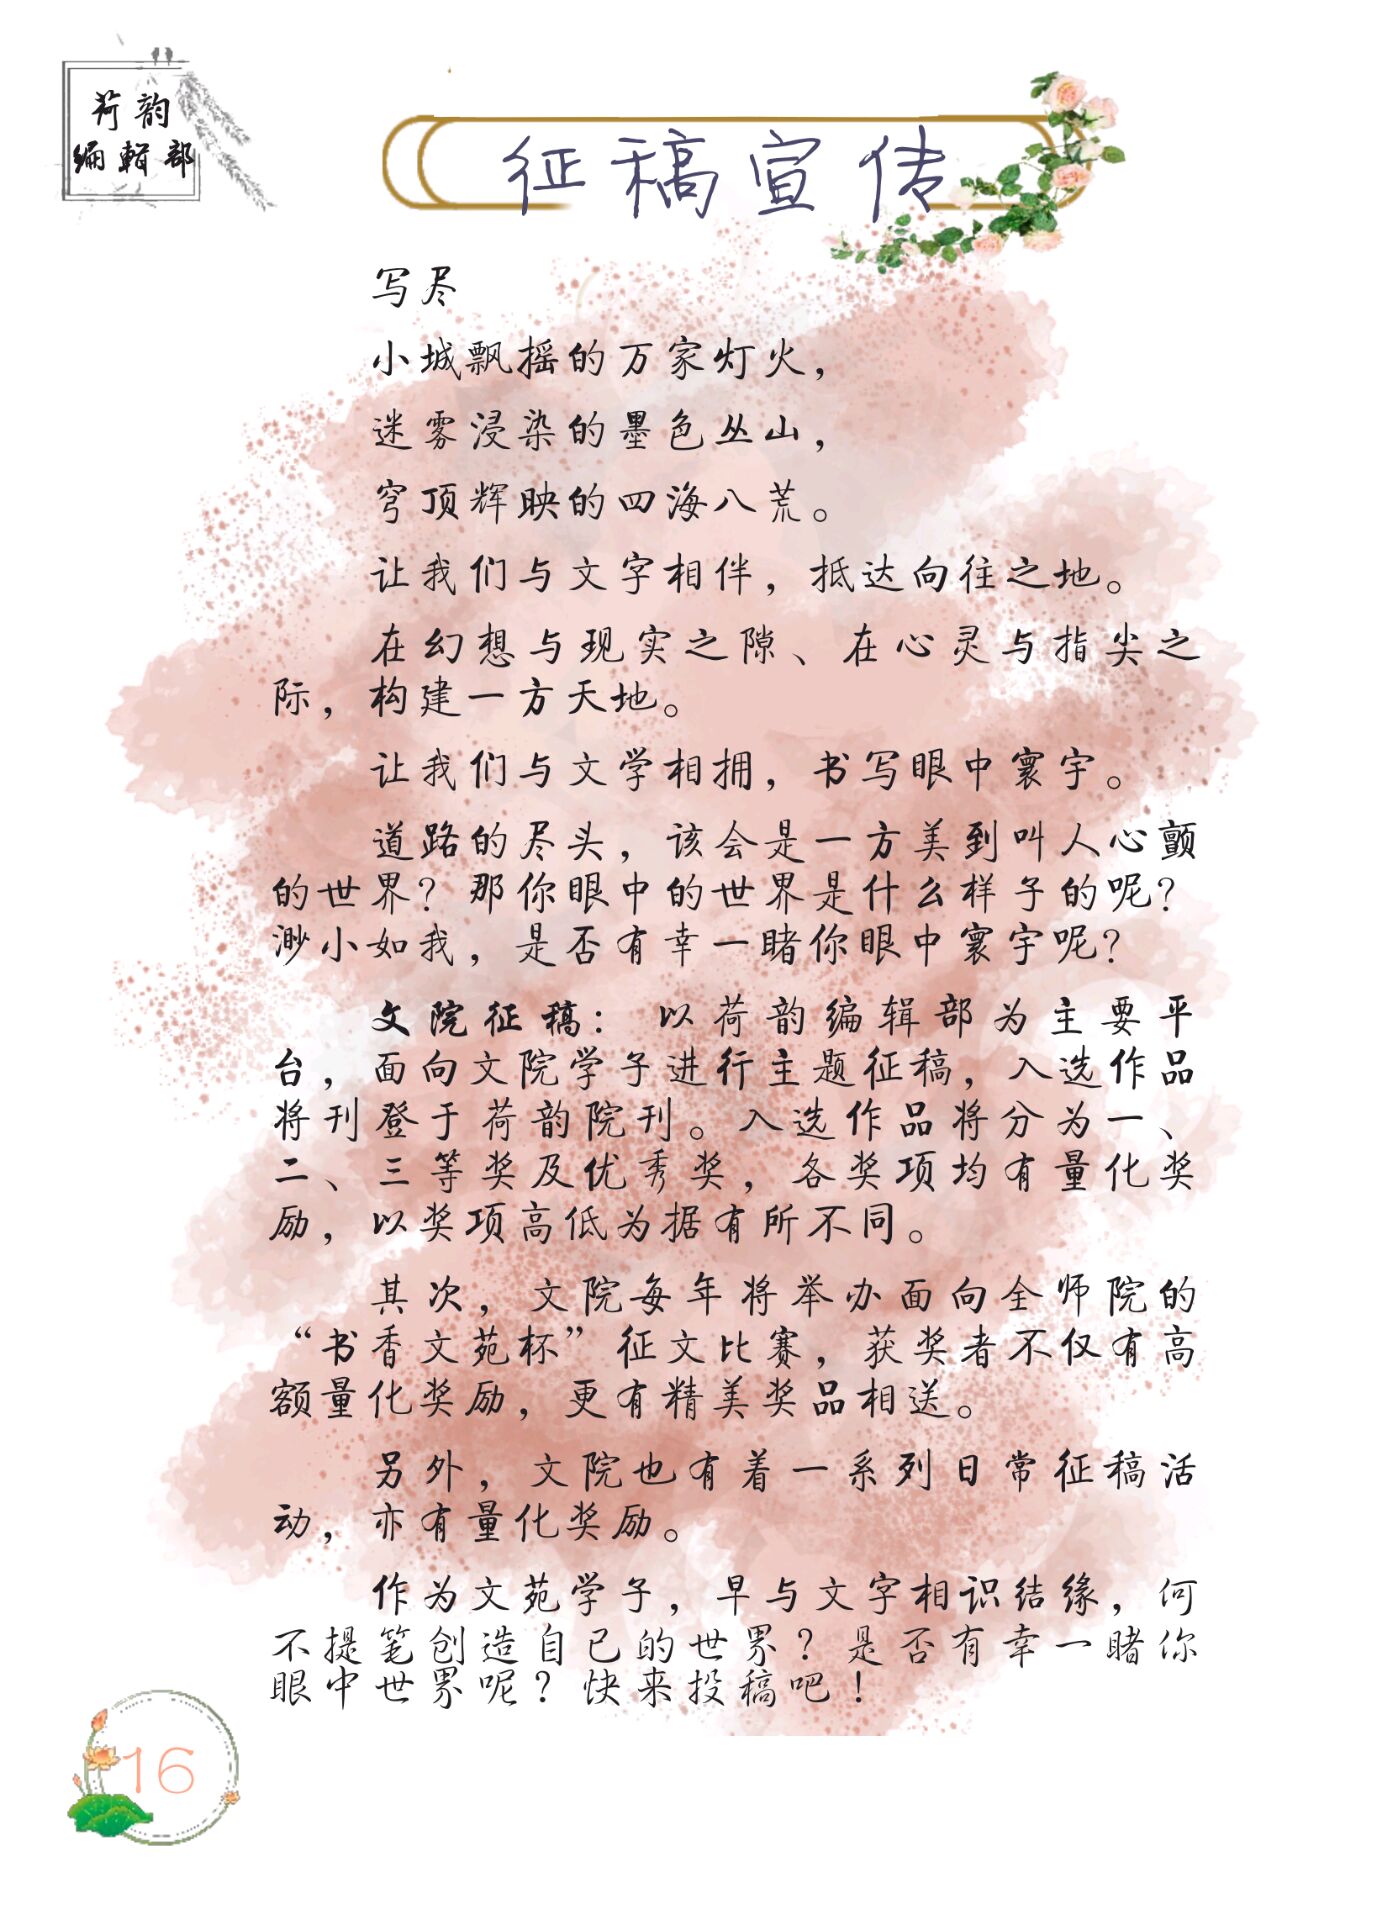 荷韵
编辑部
征稿宣传
写尽
小城飘摇的万家灯火，
迷雾浸染的墨色丛山，
穹顶辉映的四海八荒。
让我们与文字相伴，抵达向往之地。
在幻想与现实之隙、在心灵与指尖之
际，构建一方天地。
让我们与文学相拥，书写眼中寰宇。
道路的尽头，该会是一方美到叫人心颤
的世界？那你眼中的世界是什么样子的呢？
渺小如我，是否有幸一睹你眼中寰宇呢？
文院征稿：以荷韵编辑部为主要平
台，面向文院学子进行主题征稿，入选作品
将刊登于荷韵院刊。入选作品将分为一、
二、三等奖及优秀奖，各奖项均有量化奖
励，以奖项高低为据有所不同。
其次，文院每年将举办面向全师院的
“书香文苑杯”征文比赛，获奖者不仅有高
额量化奖励，更有精美奖品相送。
另外，文院也有着一系列日常征稿活
动，亦有量化奖励。
作为文苑学子，早与文字相识结缘，何
不提笔创造自己的世界？是否有幸一睹你
眼中世界呢？快来投稿吧！
16